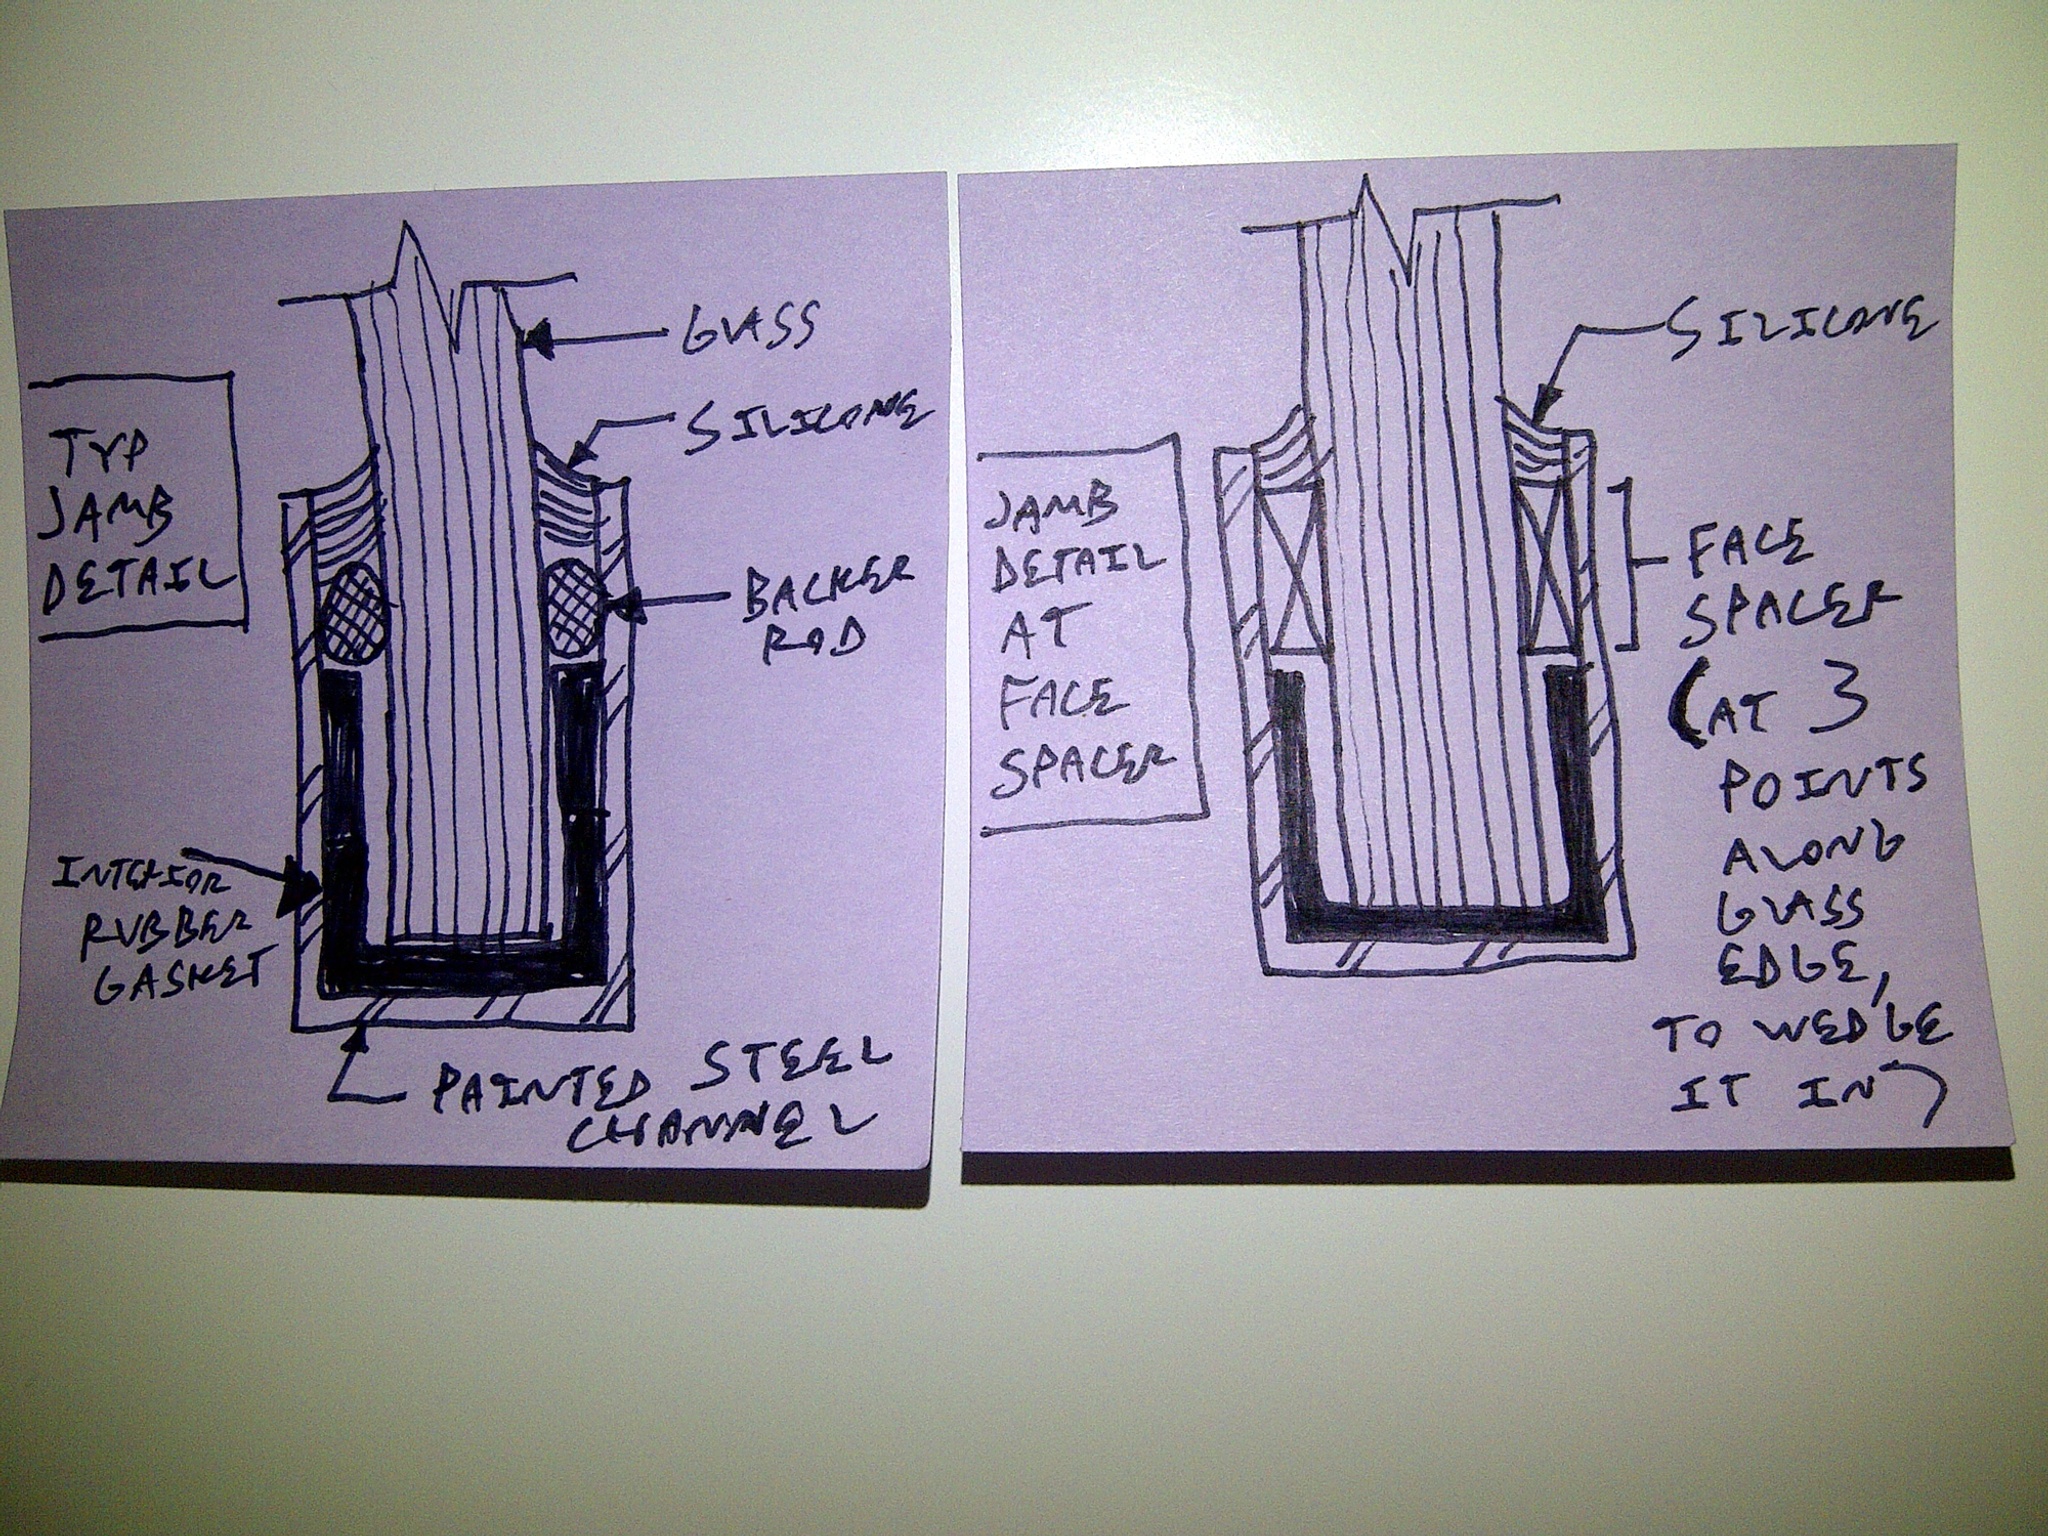 TYP
JAMB
DETAIL
GLASS
SILICONE
BACKER
ROD
INTERIOR
RUBBER
GASKET
PAINTED STEEL
CHANNEL
JAMB
DETAIL
AT
FACE
SPACER
SILICONE
FACE
SPACER
(AT 3
POINTS
ALONG
GLASS
EDGE,
TO WEDGE
IT IN)